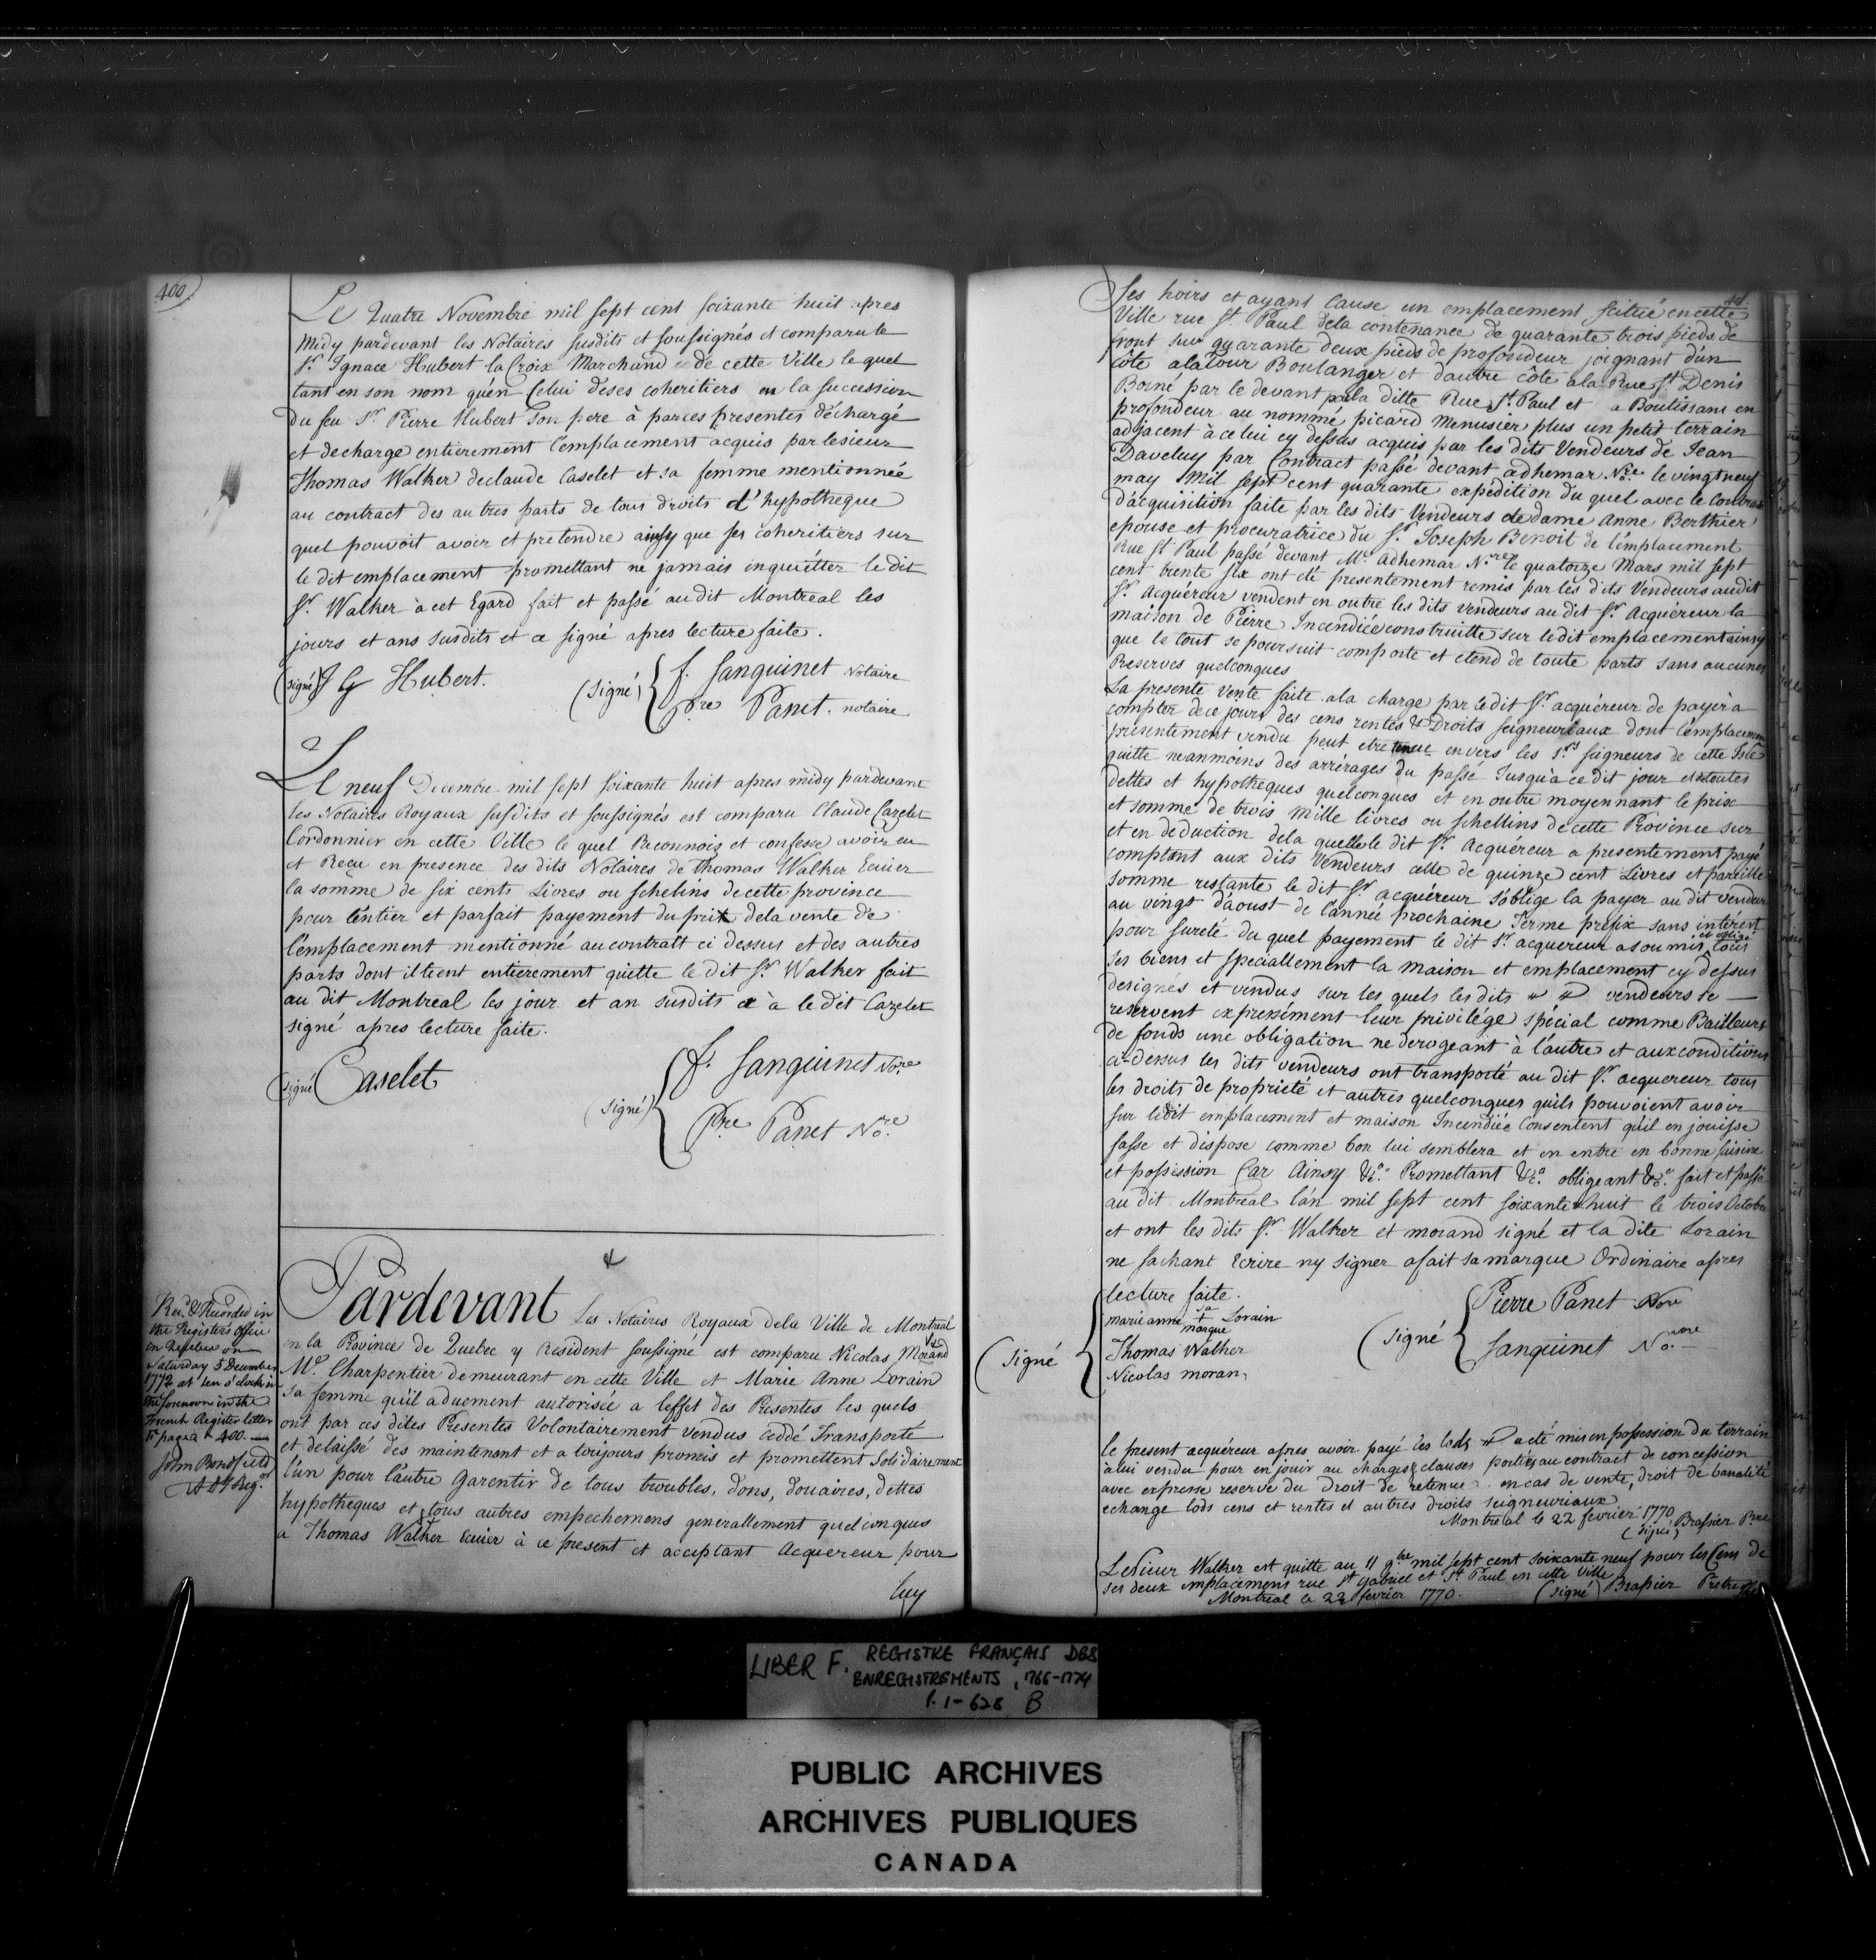 400
Le Quatre Novembre mil sept cent soixante huit apres
Midy pardevant les Notaires susdits et soussignés et comparu le
Sr. Ignace Hubert la Croix Marchand de cette Ville le quel
tant en son nom qu'en Celui de ses coheritiers en la succession
du feu Sr. Pierre Hubert son pere à par ces presentes déchargé
et decharge entierement l'emplacement acquis par le sieur
Thomas Walker de claude Caselet et sa femme mentionnée
au contract des autres parts de tous droits d'hypotheque
quel pouvoit avoir et pretendre ainsy que ses coheritiers sur
le dit emplacement promettant ne jamais inquiétter le dit
Sr. Walker à cet Egard fait et passé au dit Montreal les
jours et ans susdits et a signé apres lecture faite.
(signé) J G Hubert.
(signé) { S. Sanguinet Notaire
Pre Panet. notaire
Le neuf Decembre mil sept soixante huit apres midy pardevant
les Notaires Royaux susdits et soussignés est comparu Claude Cazelet
Cordonnier en cette Ville le quel Reconnois et confesse avoir eu
et Reçu en presence des dits Notaires de Thomas Walker Ecuier
la somme de six cents Livres ou schelins de cette province
pour l'entier et parfait payement du prix de la vente de
l'emplacement mentionné au contratt ci dessus et des autres
parts dont il tient entierement quitte le dit Sr. Walker fait
au dit Montreal les jour et an susdits a à le dit Cazelet
signé apres lecture faite.
(signé Caselet
(signé) { S. Sanguinet Nore
Pre Panet Nore
Recd. & Recorded in
the Registers Office
in Quebec on
Saturday 5 December
1772 at ten o'clock in
the forenoon in the
French Register letter
F page 400.
John Bonsfield
A Dy Reg.
Pardevant Les Notaires Royaux de la Ville de Montreal
en la Province de Quebec y Resident soussigné est comparu Nicolas Morand
Me. Charpentier demeurant en cette Ville et Marie Anne Lorain
sa femme qu'il a duement autorisée a leffet des Presentes les quels
ont par ces dites Presentes Volontairement vendus ceddé Transporté
et delaissé des maintenant et a toujours promis et promettent Solidairement
l'un pour l'autre Garentir de tous troubles, dons, douaires, dettes
hypotheques et tous autres empechemens generallement quelconques
a Thomas Walker Ecuier à ce present et acceptant Acquereur pour
luy
Ses hoirs et ayant Cause un emplacement scitué en cette
Ville rue St. Paul de la contenance de quarante trois pieds de
front sur quarante deux pieds de profondeur joignant d'un
côte a la Tour Boulanger et d'autre côte a la Rue St. Denis
Borné par le devant par la ditte Rue St. Paul et a Boutissans en
profondeur au nommé picard Menusier plus un petit terrain
adjacent à celui cy dessus acquis par les dits Vendeurs de Jean
Daveluy par Contract passé devant adhemar Nre. le vingt neuf
may Mil sept cent quarante expédition du quel avec le Contrat
d'acquisition faite par les dits Vendeurs de dame Anne Berthier
epouse et procuratrice du Sr. Joseph Benoit de l'emplacement
Rue St Paul passé devant Me. Adhemar Nre le quatorze Mars mil sept
cent trente six ont été presentement remis par les dits Vendeurs audit
Sr. Acquereur vendent en outre les dits vendeurs au dit Sr. Acquéreur la
maison de Pierre Incendiée construitte sur ledit emplacement ainsy
que le tout se poursuit comporte et etend de toute parts sans aucunes
Reserves quelconques
La presente Vente faite a la charge par le dit Sr. acquéreur de payer à
compter de ce jours des cens rentes & Droits seigneuriaux dont l'emplacement
presentement vendu peut etre tenue envers les Srs seigneurs de cette Isle
quitte neanmoins des arrérages du passé Jusqu'à ce dit jour et toutes
dettes et hypotheques quelconques et en outre moyennant le prix
et somme de trois Mille livres ou schellins de cette Province sur
et en deduction de la quelle le dit Sr. Acquereur a presentement payé
comptant aux dits Vendeurs celle de quinze cent Livres et pareille
somme restante le dit Sr. acquéreur s'oblige la payer au dit vendeur
au vingt d'aoust de l'année prochaine Terme préfix sans intérest
pour sureté du quel payement le dit Sr. acquereur a soumis et obligé tous
ses biens et speciallement la maison et emplacement cy dessus
designés et vendus sur les quels les dits vendeurs se
reservent expressément leur privilége spécial comme Bailleurs
de fonds une obligation ne derogeant à l'autre et aux conditions
ci-dessus les dits vendeurs ont transporté au dit Sr. acquereur tous
les droits de proprieté et autres quelconques qu'ils pouvoient avoir
sur le dit emplacement et maison Incendiée Consentent qu'il en jouisse
fasse et dispose comme bon lui semblera et en entre en bonne saisine
et possession Car Ainsy &c. Promettant &c. obligeant &c. fait et passé
au dit Montreal l'an mil sept cent soixante huit le trois Octobre
et ont les dits Sr. Walker et morand signé et la dite Lorain
ne sachant Ecrire ny signer a fait sa marque Ordinaire apres
lecture faite.
(signé { marie anne sa + marque Lorain
Thomas Walker
Nicolas moran,
(signé { Pierre Panet Nore
Sanguinet Nore
le present acquéreur apres avoir payé les lods a été mis en possession du terrain
à lui vendu pour en jouir au charges & clauses portées au contract de concession
avec expresse reserve du Droit de retenue en cas de vente, droit de banalité
echange lods cens et rentes et autres droits seigneuriaux
Montreal le 22 fevrier 1770
(signé) Brassier Pre
Le Sieur Walker est quitte au 11 9bre mil sept cent soixante neuf pour les Cens de
ses deux emplacemens rue St Gabriel et St. Paul en cette Ville
Montreal le 22 fevrier 1770. (signé) Brassier Pretre
LIBER F. REGISTRE FRANÇAIS DES
ENREGISTREMENTS, 1766-1774
P. 1-628 B
PUBLIC ARCHIVES
ARCHIVES PUBLIQUES
CANADA